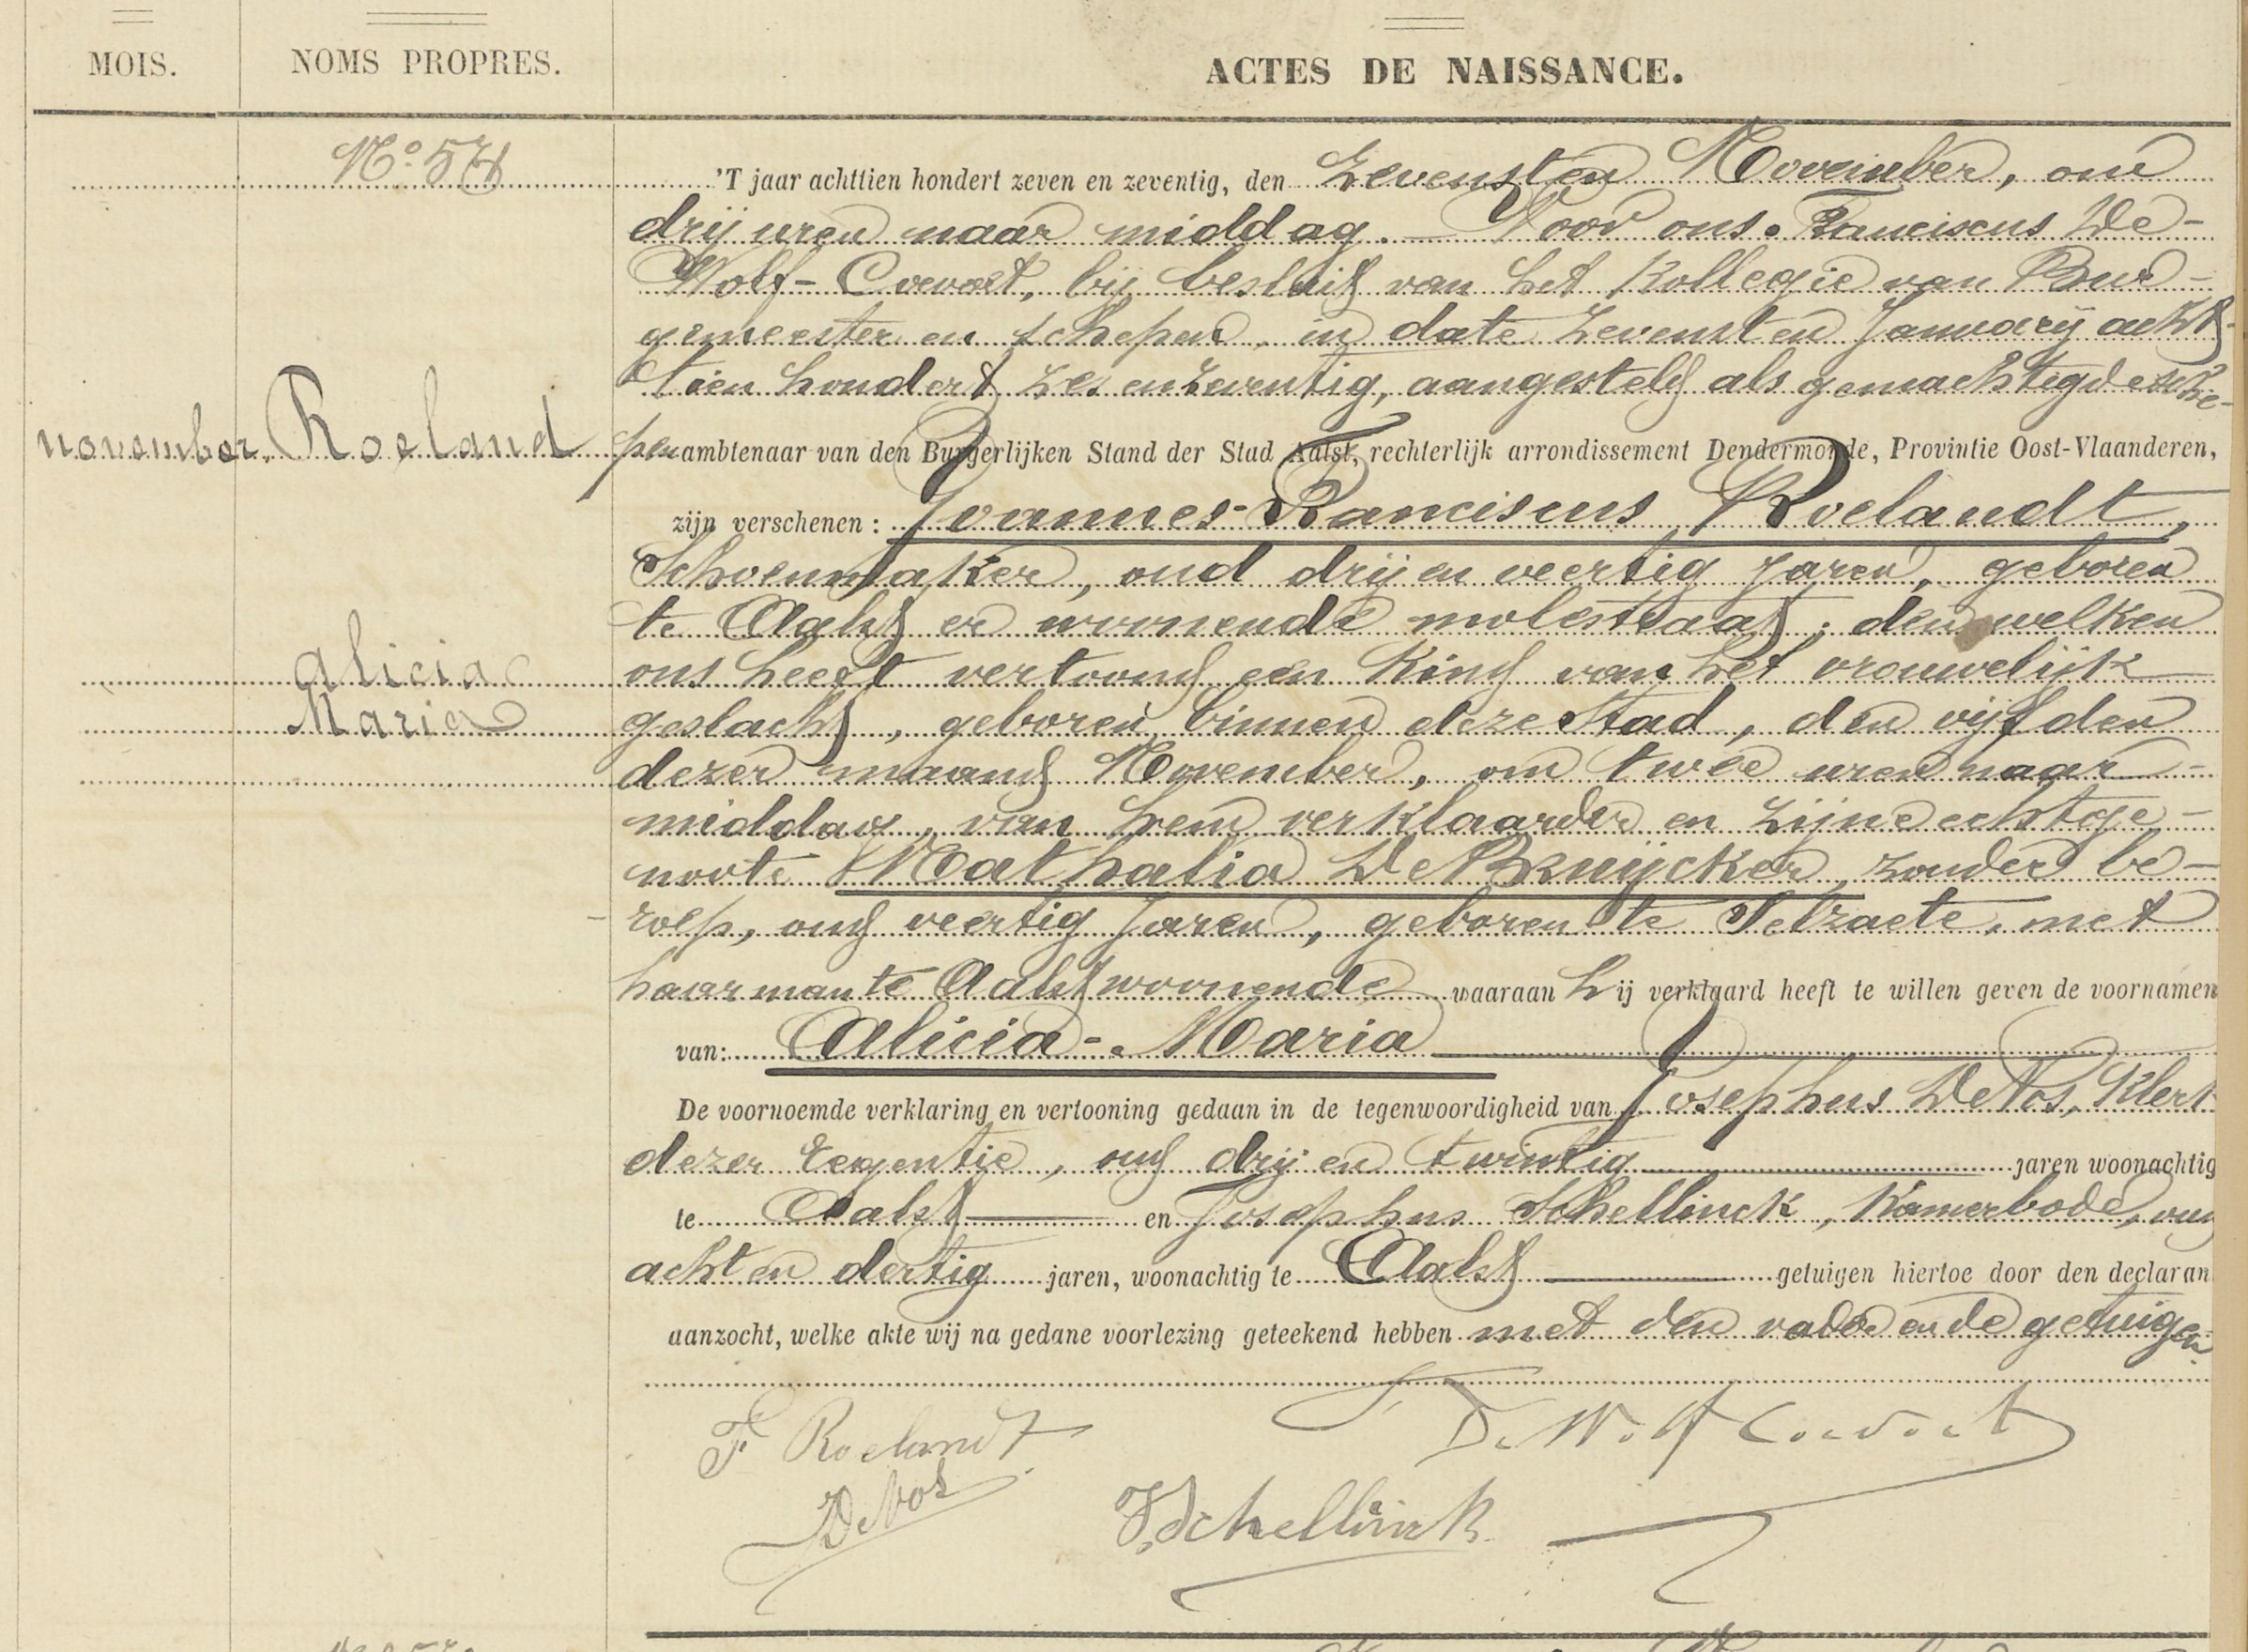 MOIS. NOMS PROPRES. ACTES DE NAISSANCE.
N.º 574
'T jaar achttien hondert zeven en zeventig, den Zevensten November, om
drij uren naar middag. — Voor ons. Franciscus De-
Wolf-Coevoet, bij besluit van het Kollegie van Bur-
gemeester en schepen, in date zevensten January acht-
tien hondert zes en zeventig, aangesteld als gemachtigde sche-
november. Roeland
pen ambtenaar van den Burgerlijken Stand der Stad Aalst, rechterlijk arrondissement Dendermonde, Provintie Oost-Vlaanderen,
zijn verschenen: Joannes-Franciscus Roelandt,
Schoenmaker, oud drij en veertig jaren, geboren
te Aalst en woonende molestraat; den welken
Alicia
ons heeft vertoond een Kind van het vrouwelijk
Maria
geslacht, geboren binnen deze Stad, den vijfden
dezer maand November, om twee uren naar-
middag, van hem verklaarder en zijne echtge-
noote Nathalia De Bruijcker, zonder be-
roep, oud veertig jaren, geboren te Velzaete, met
haar man te Aalst woonende waaraan hij verklaard heeft te willen geven de voornamen
van: Alicia-Maria
De voornoemde verklaring en vertooning gedaan in de tegenwoordigheid van Josephus De Vos, Klerk
dezer Regentie, oud drij en twintig jaren woonachtig
te Aalst en Josephus Schellinck, Kamerbode, oud
acht en dertig jaren, woonachtig te Aalst getuigen hiertoe door den declaran
aanzocht, welke akte wij na gedane voorlezing geteekend hebben met den vader en de getuigen.
F Roelandt De Wolf Coevoet
De Vos J. Schellinck